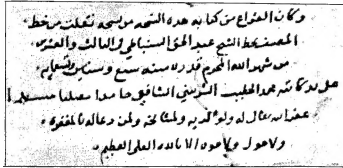 وكان الفراغ من كتابة هذه النسخة من نسخة نقلت من خط
المصنف بخط الشيخ عبد الحق السنباطي في الثالث والعشرين
من شهر الله المحرم قدره سنة سبع وستين وتسعمايه
على يد كاتبه محمد الخطيب الشافعي حامدا مصليا مسلما
غفر الله له ولوالديه ولمشايخه ولمن دعا له بالمغفره
ولا حول ولا قوه الا بالله العلي العظيم